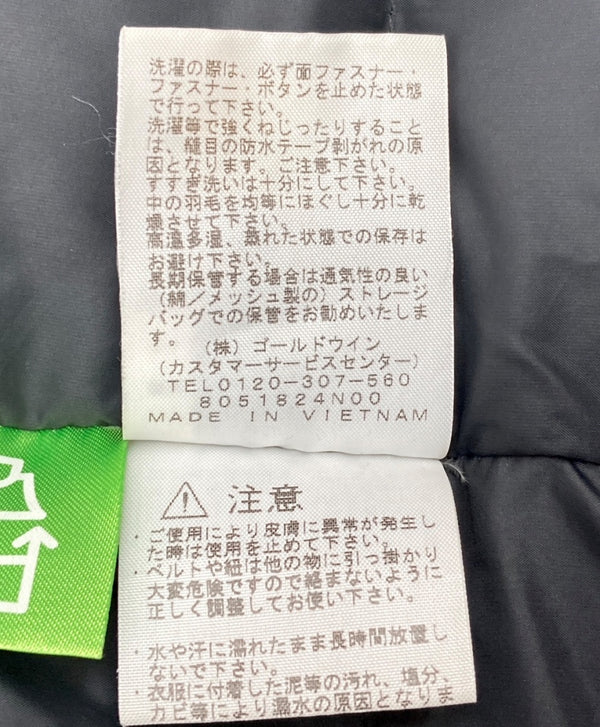 洗濯の際は、必ず面ファスナー・
ファスナー・ボタンを止めた状態
で行って下さい。
洗濯等で強くねじったりすること
は、縫目の防水テープ剥がれの原
因となります。ご注意下さい。
すすぎ洗いは十分にして下さい。
中の羽毛を均等にほぐし十分に乾
燥させて下さい。
高温多湿、蒸れた状態での保存は
お避け下さい。
長期保管する場合は通気性の良い
(綿/メッシュ製の)ストレージ
バッグでの保管をお勧めいたしま
す。
(株)ゴールドウイン
(カスタマーサービスセンター)
TEL0120-307-560
8051824N00
MADE IN VIETNAM
⚠ 注意
・ご使用により皮膚に異常が発生し
た時は使用を止めて下さい。
・ベルトや紐は他の物に引っ掛かり
大変危険ですので絡まないように
正しく調整してお使い下さい。
・水や汗に濡れたまま長時間放置し
ないで下さい。
・衣服に付着した泥等の汚れ、塩分、
カビ等により漏水の原因となりま